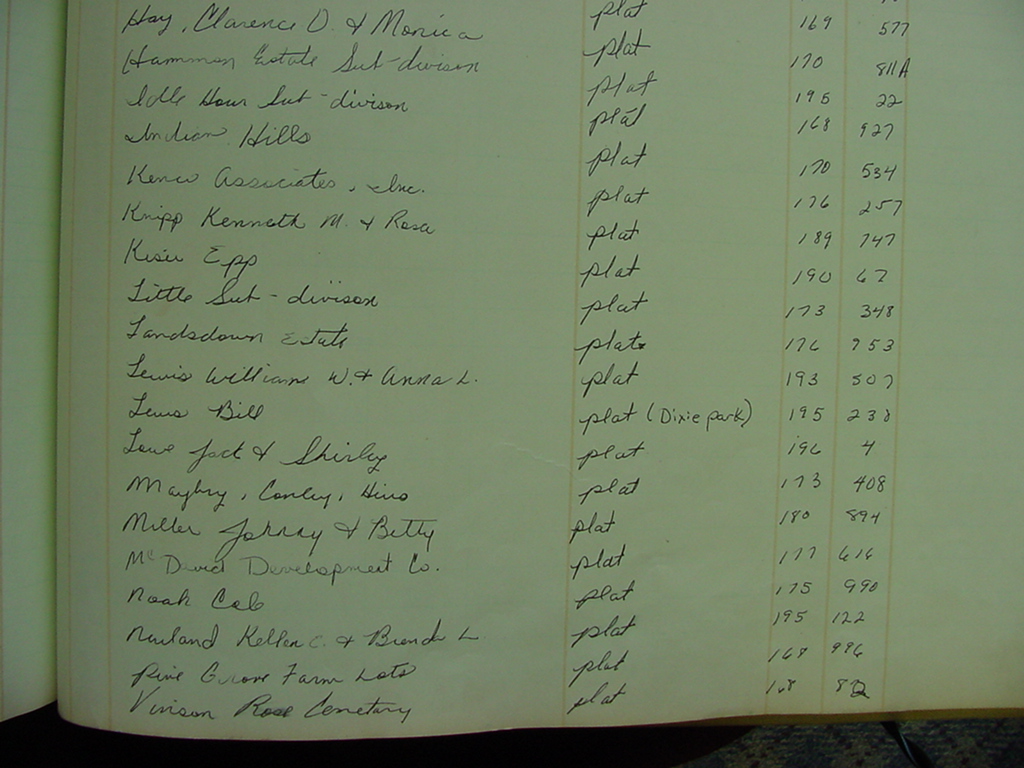 Hay, Clarence D. & Monica plat 169 577
Hammon Estate Sub-division plat 170 811A
Idle Hour Sub-division plat 195 22
Indian Hills plat 168 927
Kenco Associates, Inc. plat 170 534
Knipp Kenneth M. & Rosa plat 176 257
Epp plat 189 747
Little Sub-division plat 190 62
Landsdown Estate plat 173 348
Lewis William W. & Anna L. plat 176 753
Lewis Bill plat 193 507
Lewis Jack & Shirley plat (Dixie park) 195 238
Maybry, Conley, plat 196 4
Miller Johnny & Betty plat 173 408
McDavid Development Co. plat 180 894
Nash plat 177 616
plat 175 990
Newland C. & L. plat 195 122
Pine Grove Farm Lots plat 168 996
Vinson Rose Cemetery plat